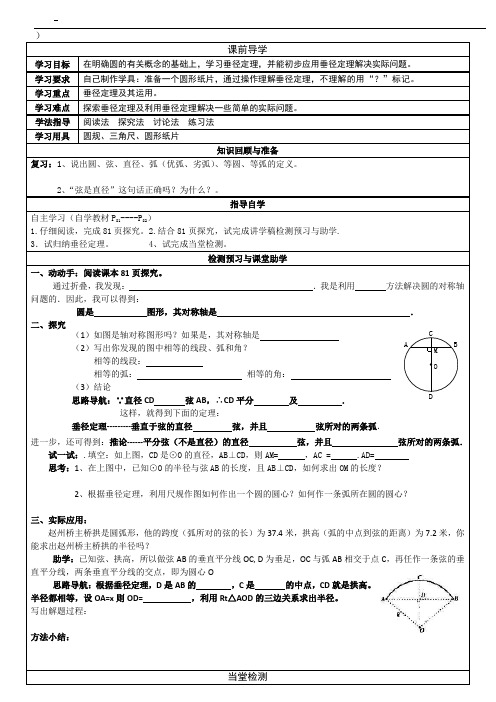 )
课前导学
学习目标 在明确圆的有关概念的基础上，学习垂径定理，并能初步应用垂径定理解决实际问题。
学习要求 自己制作学具：准备一个圆形纸片，通过操作理解垂径定理，不理解的用“？”标记。
学习重点 垂径定理及其运用。
学习难点 探索垂径定理及利用垂径定理解决一些简单的实际问题。
学法指导 阅读法 探究法 讨论法 练习法
学习用具 圆规、三角尺、圆形纸片
知识回顾与准备
复习：1、说出圆、弦、直径、弧（优弧、劣弧）、等圆、等弧的定义。
2、“弦是直径”这句话正确吗？为什么？。
指导自学
自主学习（自学教材P81----P82）
1.仔细阅读，完成81页探究。2.结合81页探究，试完成讲学稿检测预习与助学.
3．试归纳垂径定理。 4、试完成当堂检测。
检测预习与课堂助学
一、动动手：阅读课本81页探究。
通过折叠，我发现：          .我是利用    方法解决圆的对称轴
问题的．因此，我可以得到：
圆是      图形，其对称轴是          ．
二、探究
（1）如图是轴对称图形吗？如果是，其对称轴是
（2）写出你发现的图中相等的线段、弧和角？
相等的线段：
相等的弧：       相等的角：
（3）结论
思路导航：∵直径CD    弦AB，∴CD平分    及    ．
这样，就得到下面的定理：
垂径定理--------垂直于弦的直径    弦，并且    弦所对的两条弧.
进一步，还可得到：推论------平分弦（不是直径）的直径    弦，并且    弦所对的两条弧．
试一试：.填空：如上图，CD是⊙O的直径，AB⊥CD，则AM=    ，AC =    .AD=
思考：1、在上图中，已知⊙O的半径与弦AB的长度，且AB⊥CD，如何求出OM的长度？
2、根据垂径定理，利用尺规作图如何作出一个圆的圆心？如何作一条弧所在圆的圆心？
C
A
B
M
O
D
三、实际应用：
赵州桥主桥拱是圆弧形，他的跨度（弧所对的弦的长）为 37.4 米，拱高（弧的中点到弦的距离）为 7.2 米，你
能求出赵州桥主桥拱的半径吗？
助学：已知弦、拱高，所以做弦 AB 的垂直平分线 OC, D 为垂足，OC 与弧 AB 相交于点 C，再任作一条弦的垂
直平分线，两条垂直平分线的交点，即为圆心 O
思路导航：根据垂径定理，D 是 AB 的    ，C 是    的中点，CD 就是拱高。
半径都相等，设 OA=x 则 OD=    ，利用 Rt△AOD 的三边关系求出半径。
写出解题过程：
C
A
D
B
R
O
方法小结：
当堂检测